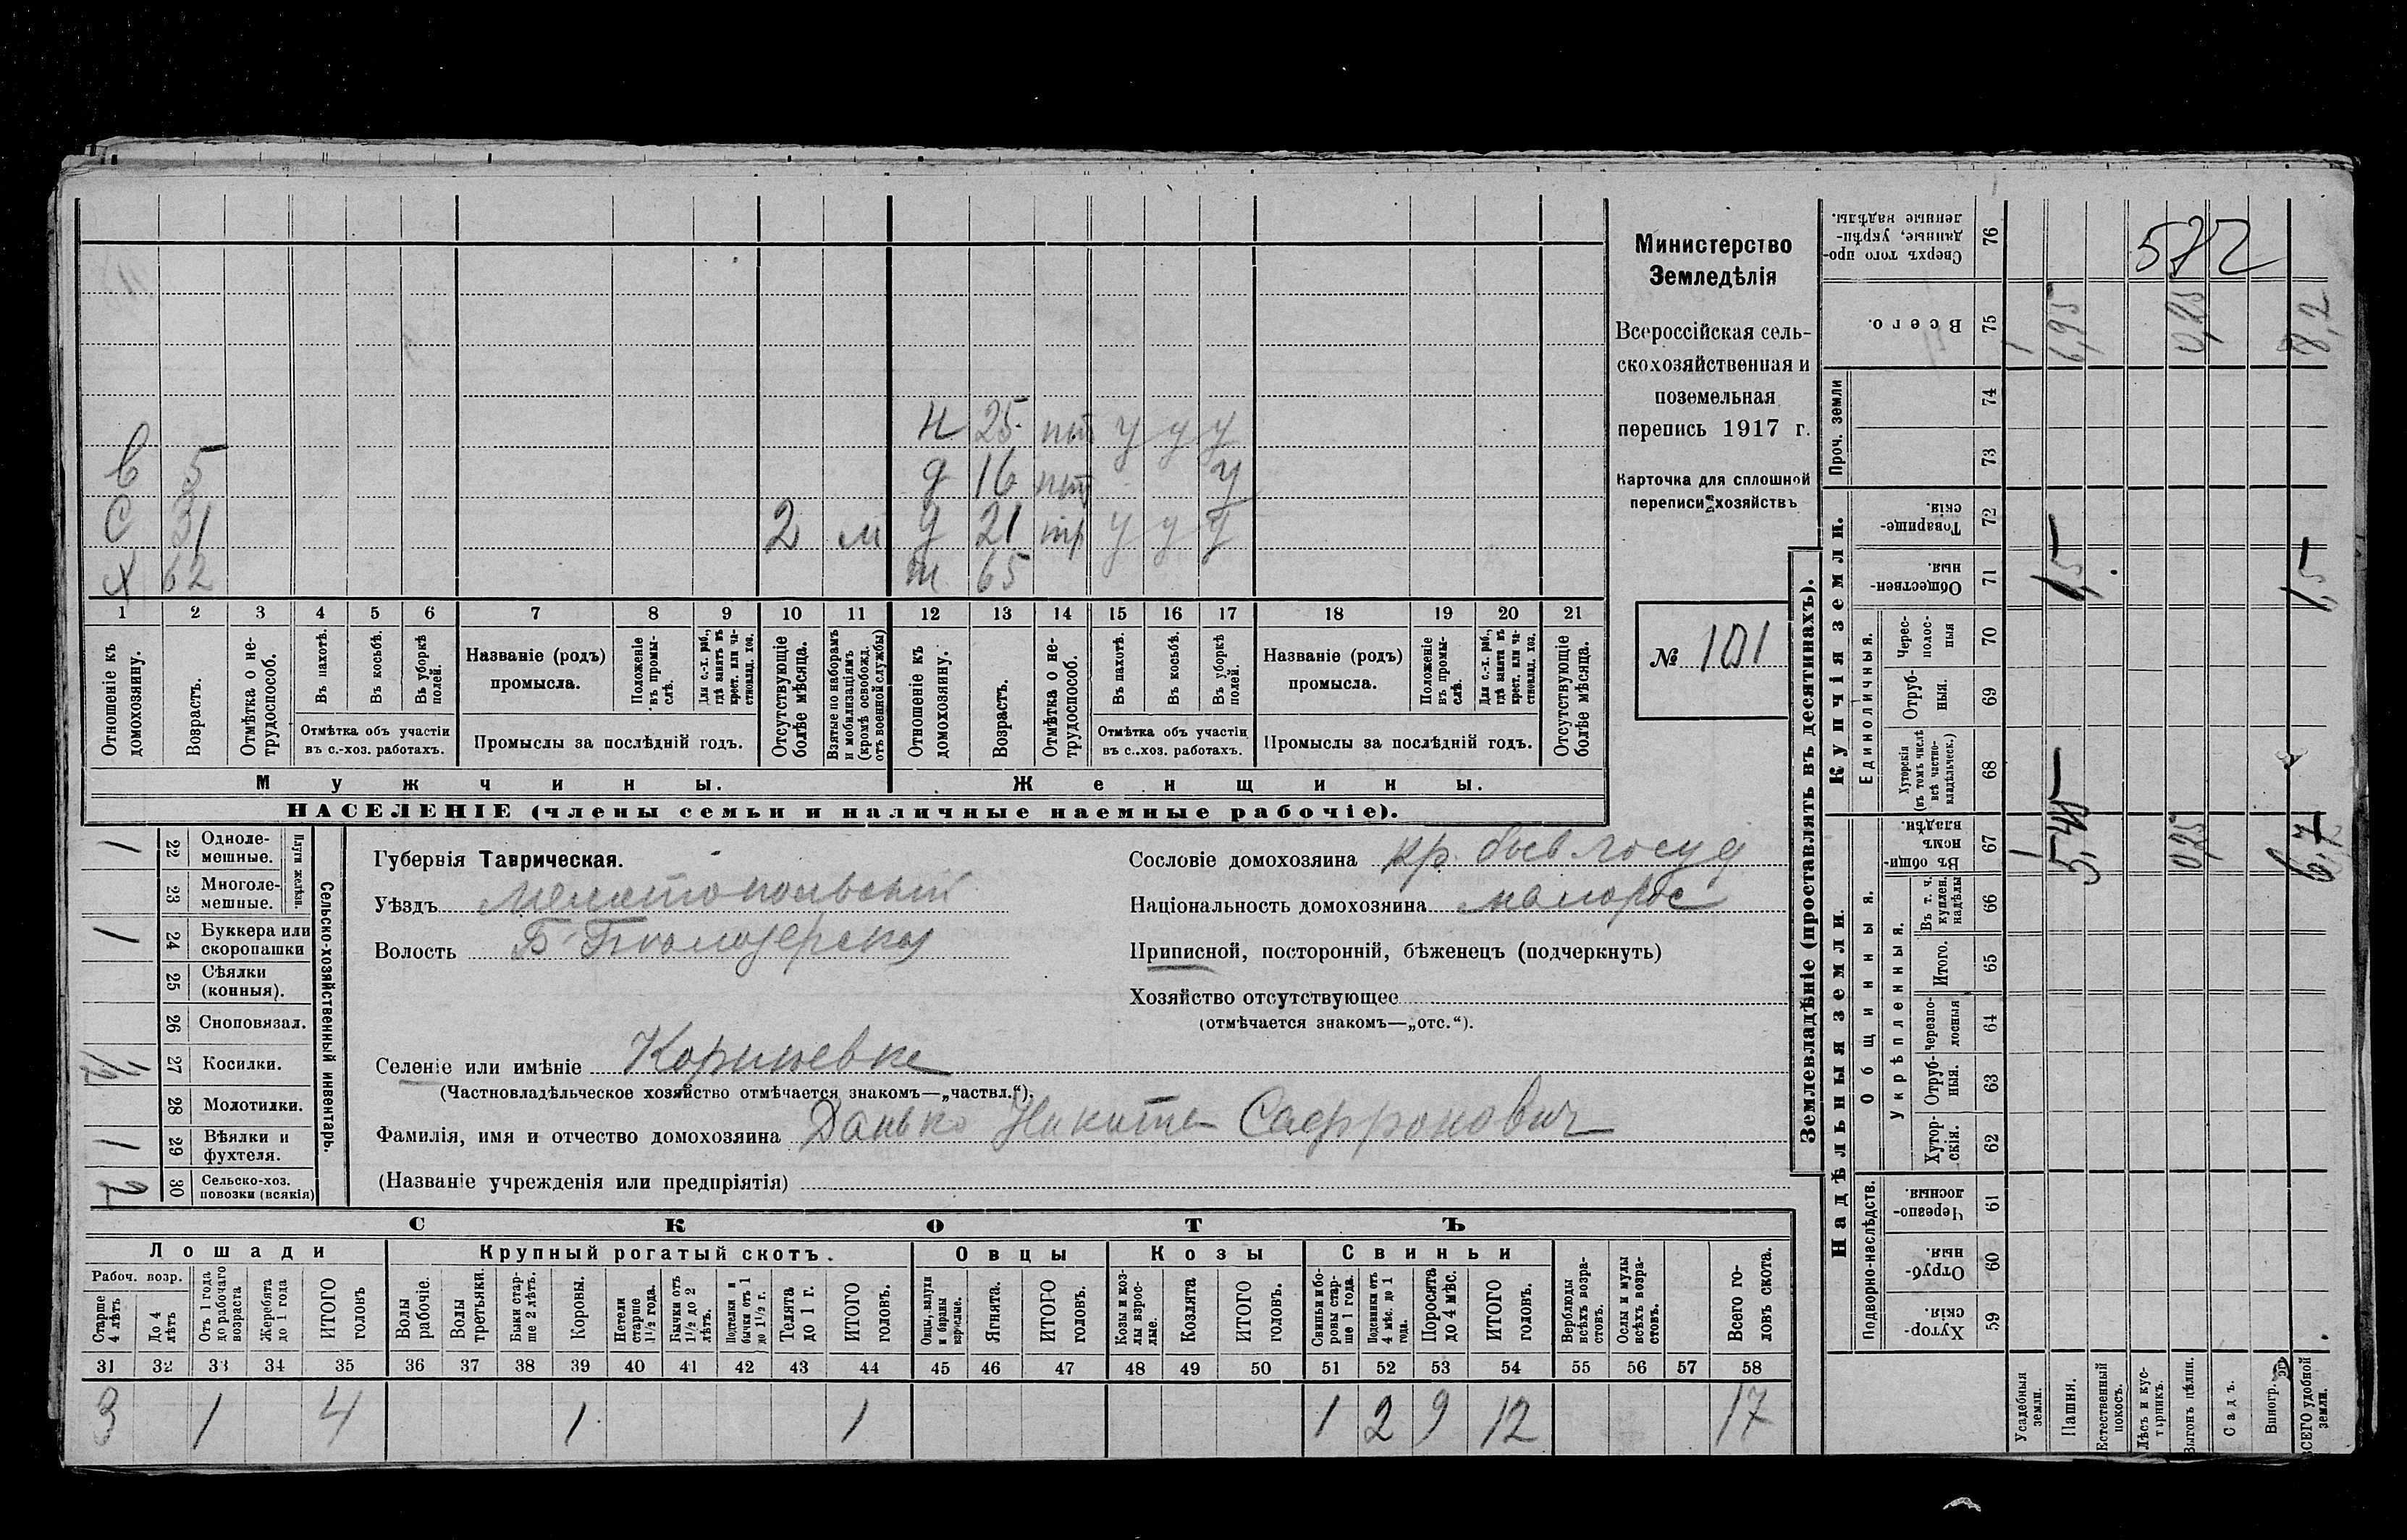 Министерство
Земледѣлія
Всероссійская сель-
скохозяйственная и
поземельная
перепись 1917 г.
Карточка для сплошной
переписи хозяйствъ
№ 101
572
н 25 пт у у у
в 5
д 16 пт у
с 31 2 м
д 21 тр у у у
х 62
м 65
1 2 3 4 5 6 7 8 9 10 11 12 13 14 15 16 17 18 19 20 21
Отношеніе къ домохозяину.
Возрастъ.
Отмѣтка о не-трудоспособ.
Въ пахотѣ.
Въ косьбѣ.
Въ уборкѣ полей.
Отмѣтка объ участіи
въ с.-хоз. работахъ.
Названіе (родъ)
промысла.
Положеніе въ промы-слѣ.
Для с.-х. раб., гдѣ занятъ въ крест. или ча-стновлад. хоз.
Промыслы за послѣдній годъ.
Отсутствующіе болѣе мѣсяца.
Взятые по наборамъ и мобилизаціямъ (кромѣ освобожд. отъ военной службы)
Отношеніе къ домохозяину.
Возрастъ.
Отмѣтка о не-трудоспособ.
Въ пахотѣ.
Въ косьбѣ.
Въ уборкѣ полей.
Отмѣтка объ участіи
въ с.-хоз. работахъ.
Названіе (родъ)
промысла.
Положеніе въ промы-слѣ.
Для с.-х. раб., гдѣ занята въ крест. или ча-стновлад. хоз.
Промыслы за послѣдній годъ.
Отсутствующіе болѣе мѣсяца.
Мужчины.
Женщины.
НАСЕЛЕНІЕ (члены семьи и наличные наемные рабочіе).
Сельско-хозяйственный инвентарь.
Плуги желѣзн.
1 22 Одноле-мешные.
23 Многоле-мешные.
1 24 Буккера или скоропашки
25 Сѣялки (конныя).
26 Сноповязал.
1/2 27 Косилки.
28 Молотилки.
1 29 Вѣялки и фухтеля.
2 30 Сельско-хоз. повозки (всякія)
Губернія Таврическая.
Уѣздъ Мелитопольскій
Волость Б Бѣлозерская
Селеніе или имѣніе
(Частновладѣльческое хозяйство отмѣчается знакомъ—„частвл.“).
Фамилія, имя и отчество домохозяина Данько Никита Саффронович
(Названіе учрежденія или предпріятія)
Сословіе домохозяина кр. бывъ госуд
Національность домохозяина малорос
Приписной, посторонній, бѣженецъ (подчеркнуть)
Хозяйство отсутствующее
(отмѣчается знакомъ—„отс.“).
СКОТЪ
Лошади
Крупный рогатый скотъ.
Овцы
Козы
Свиньи
Рабоч. возр.
Старше 4 лѣтъ
До 4 лѣтъ
Отъ 1 года до рабочаго возраста
Жеребята до 1 года
ИТОГО головъ
Волы рабочіе.
Волы третьяки.
Быки стар-ше 2 лѣтъ.
Коровы.
Нетели старше 1½ года.
Бычки отъ 1½ до 2 лѣтъ.
Подтелки и бычки отъ 1 до 1½ г.
Телята до 1 г.
ИТОГО головъ.
Овцы, валухи и бараны взрослые.
Ягнята.
ИТОГО головъ.
Козы и коз-лы взрос-лые.
Козлята
ИТОГО головъ.
Свиньи и бо-ровы стар-ше 1 года.
Подсвинки отъ 4 мѣс. до 1 года.
Поросята до 4 мѣс.
ИТОГО головъ.
Верблюды всѣхъ возра-стовъ.
Ослы и мулы всѣхъ возра-стовъ.
Всего го-ловъ скота.
31 32 33 34 35 36 37 38 39 40 41 42 43 44 45 46 47 48 49 50 51 52 53 54 55 56 57 58
3 1 4 1 1 1 2 9 12 17
Землевладѣніе (проставлять въ десятинахъ).
Надѣльныя земли.
Купчія земли.
Проч. земли
Подворно-наслѣдств.
Общинныя.
Укрѣпленныя.
Единоличныя.
Сверхъ того про-данные, укрѣп-ленные надѣлы. 76
Всего. 75 1 6,95 0,25 8,2
74
73
Товарище-скія. 72
Обществен-ныя. 71 1,5 1,5
Черес-полос-ныя 70
Отруб-ныя. 69
Хуторскія (въ томъ числѣ всѣ частно-владѣльческ.) 68
Въ общи-номъ владѣн. 67 1 5,45 0,25 6,7
Въ т. ч. куплен. надѣлы 66
Итого. 65
Черезпо-лосныя 64
Отруб-ныя. 63
Хутор-скія. 62
Черезпо-лосныя. 61
Отруб-ныя. 60
Хутор-скія. 59
Усадебныя земли.
Пашня.
Естественный покосъ.
Лѣсъ и кус-тарникъ.
Выгонъ цѣлин.
Садъ.
Виногр.
ВСЕГО удобной земли.